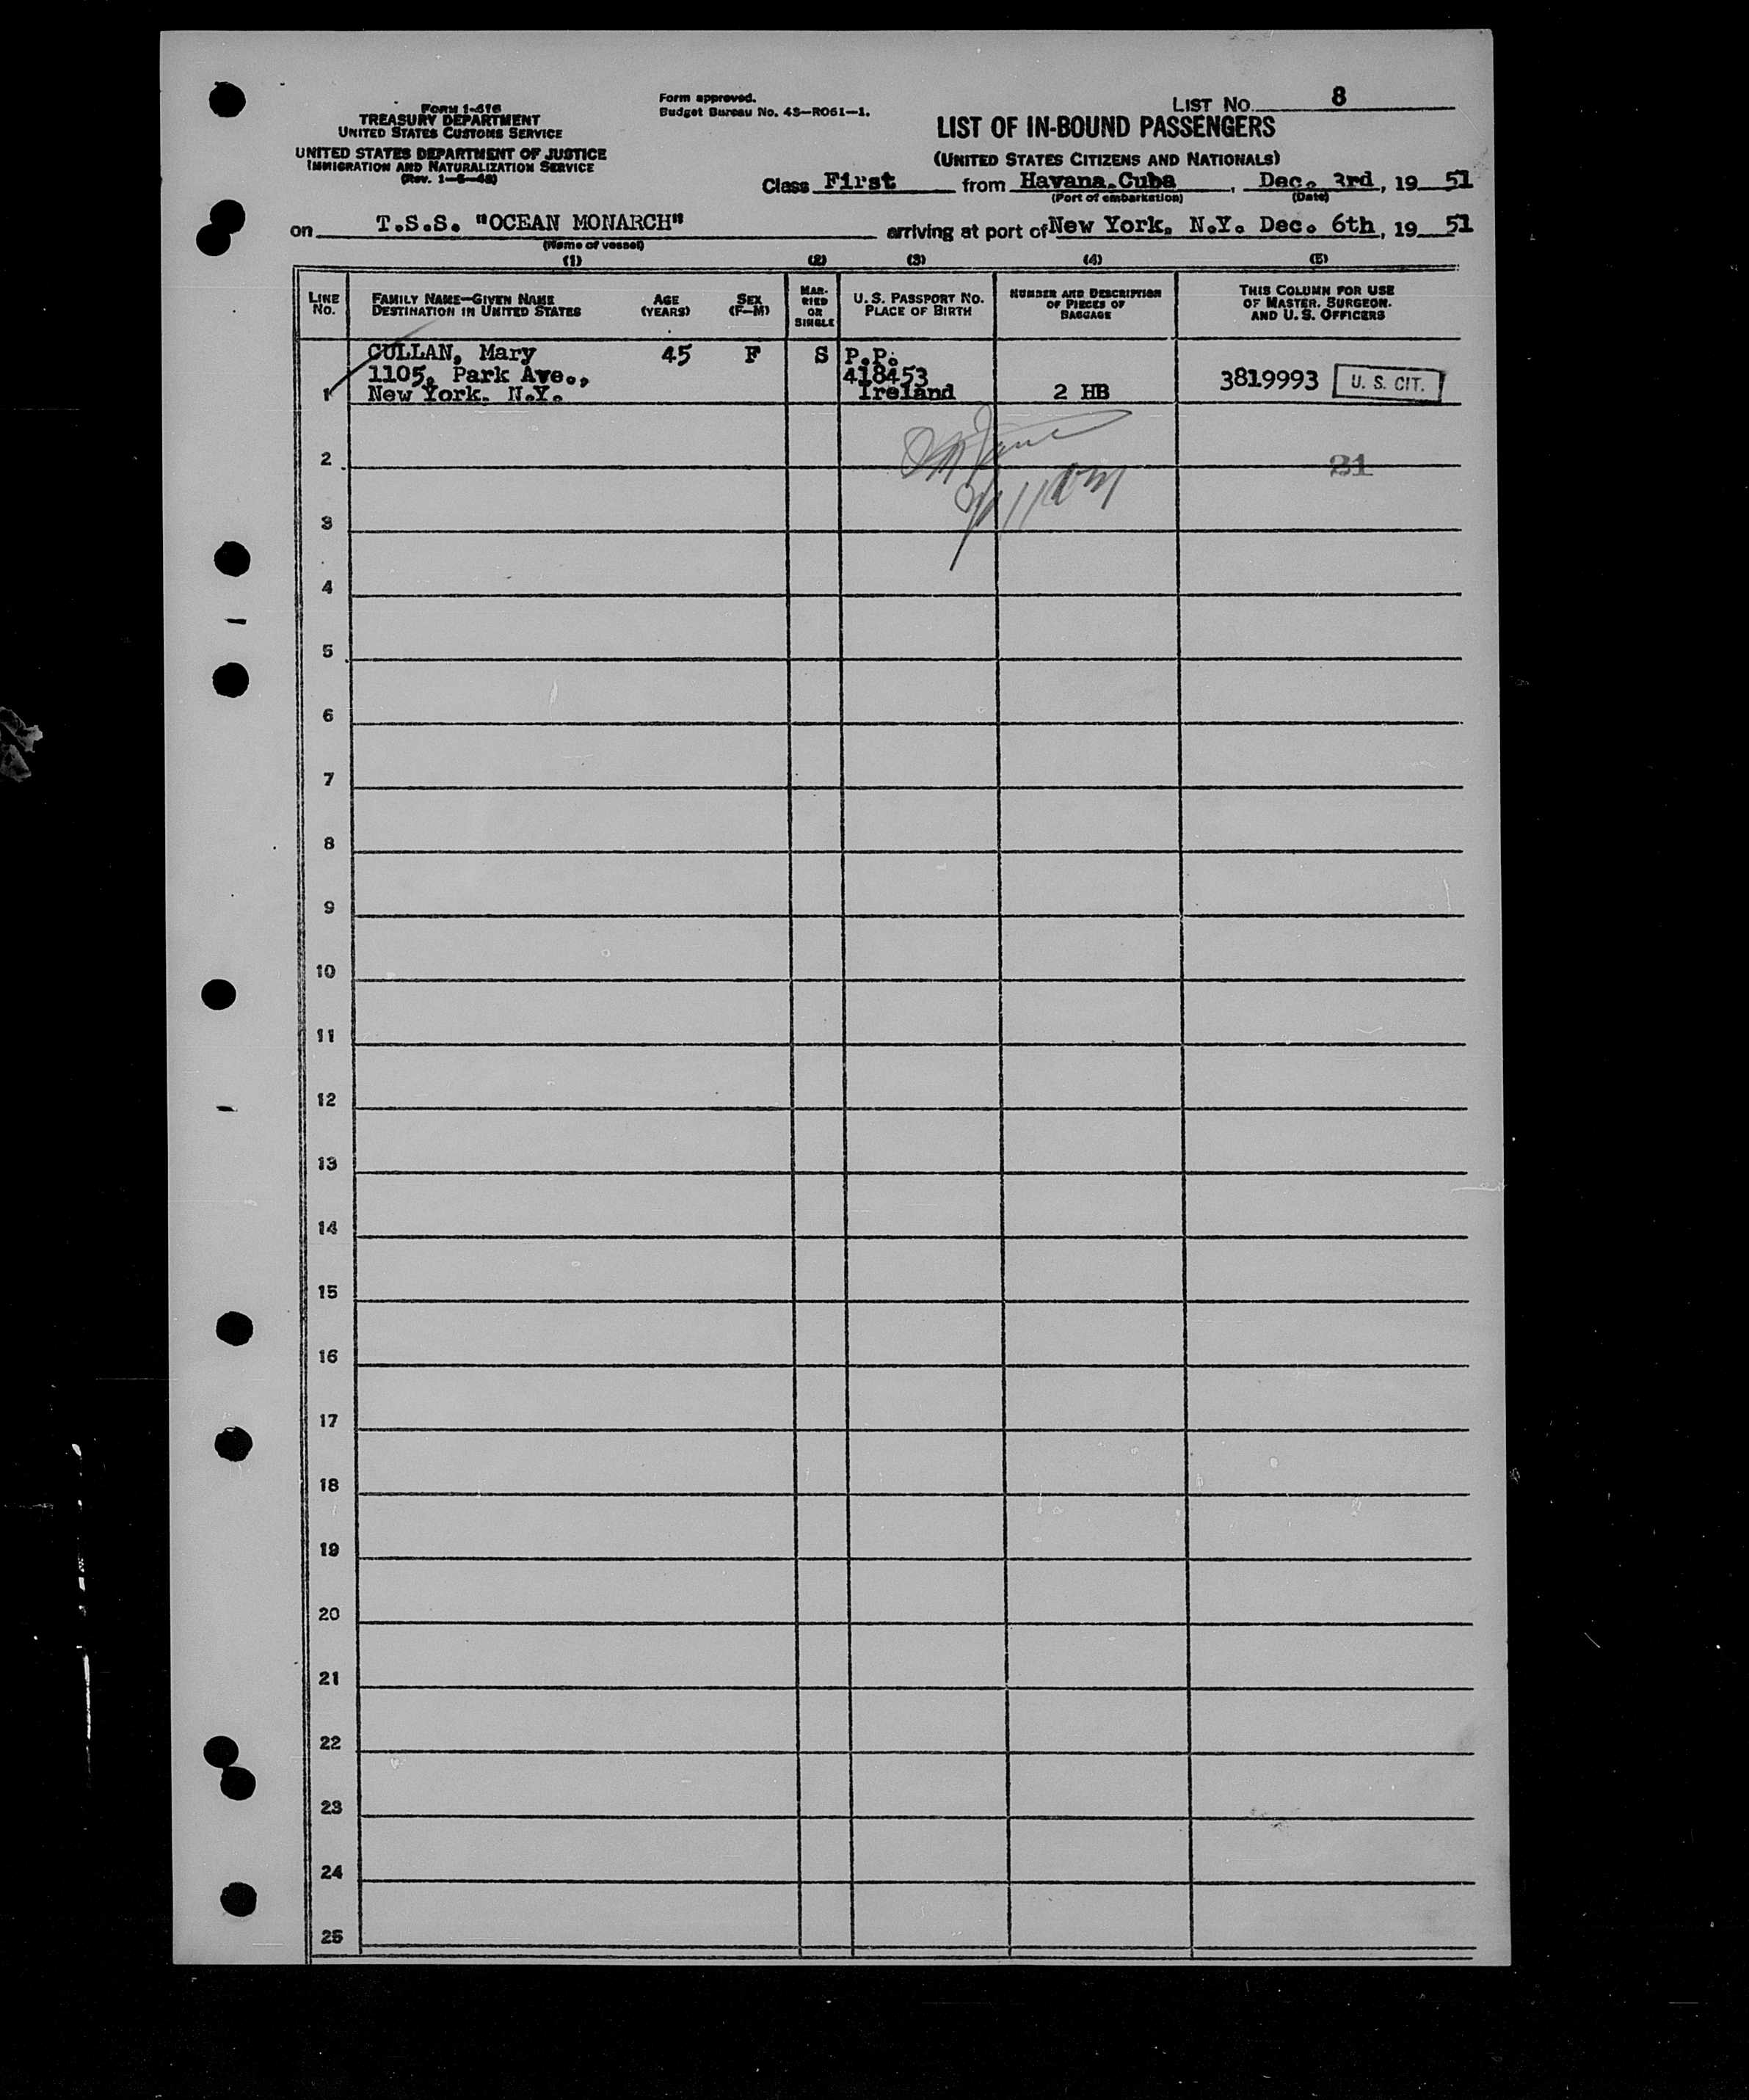 Form I-416
TREASURY DEPARTMENT
UNITED STATES CUSTOMS SERVICE
UNITED STATES DEPARTMENT OF JUSTICE
IMMIGRATION AND NATURALIZATION SERVICE
Form approved.
Budget Bureau No. 43-R061-1.
LIST NO. 8
LIST OF IN-BOUND PASSENGERS
(UNITED STATES CITIZENS AND NATIONALS)
Class First from Havana.Cuba, Dec. 3rd, 19 51
(Port of embarkation) (Date)
on T.S.S. "OCEAN MONARCH" arriving at port of New York. N.Y. Dec. 6th, 19 51
(Name of vessel)
(1) (2) (3) (4) (5)
LINE NO.
FAMILY NAME—GIVEN NAME
DESTINATION IN UNITED STATES
AGE (YEARS)
SEX (F—M)
MARRIED OR SINGLE
U. S. PASSPORT NO.
PLACE OF BIRTH
NUMBER AND DESCRIPTION
OF PIECES OF
BAGGAGE
THIS COLUMN FOR USE
OF MASTER, SURGEON,
AND U. S. OFFICERS
CULLAN, Mary 45 F S P.P.
1105, Park Ave., 418453 3819993 U. S. CIT.
1 New York. N.Y. Ireland 2 HB
2 21
3
4
5
6
7
8
9
10
11
12
13
14
15
16
17
18
19
20
21
22
23
24
25